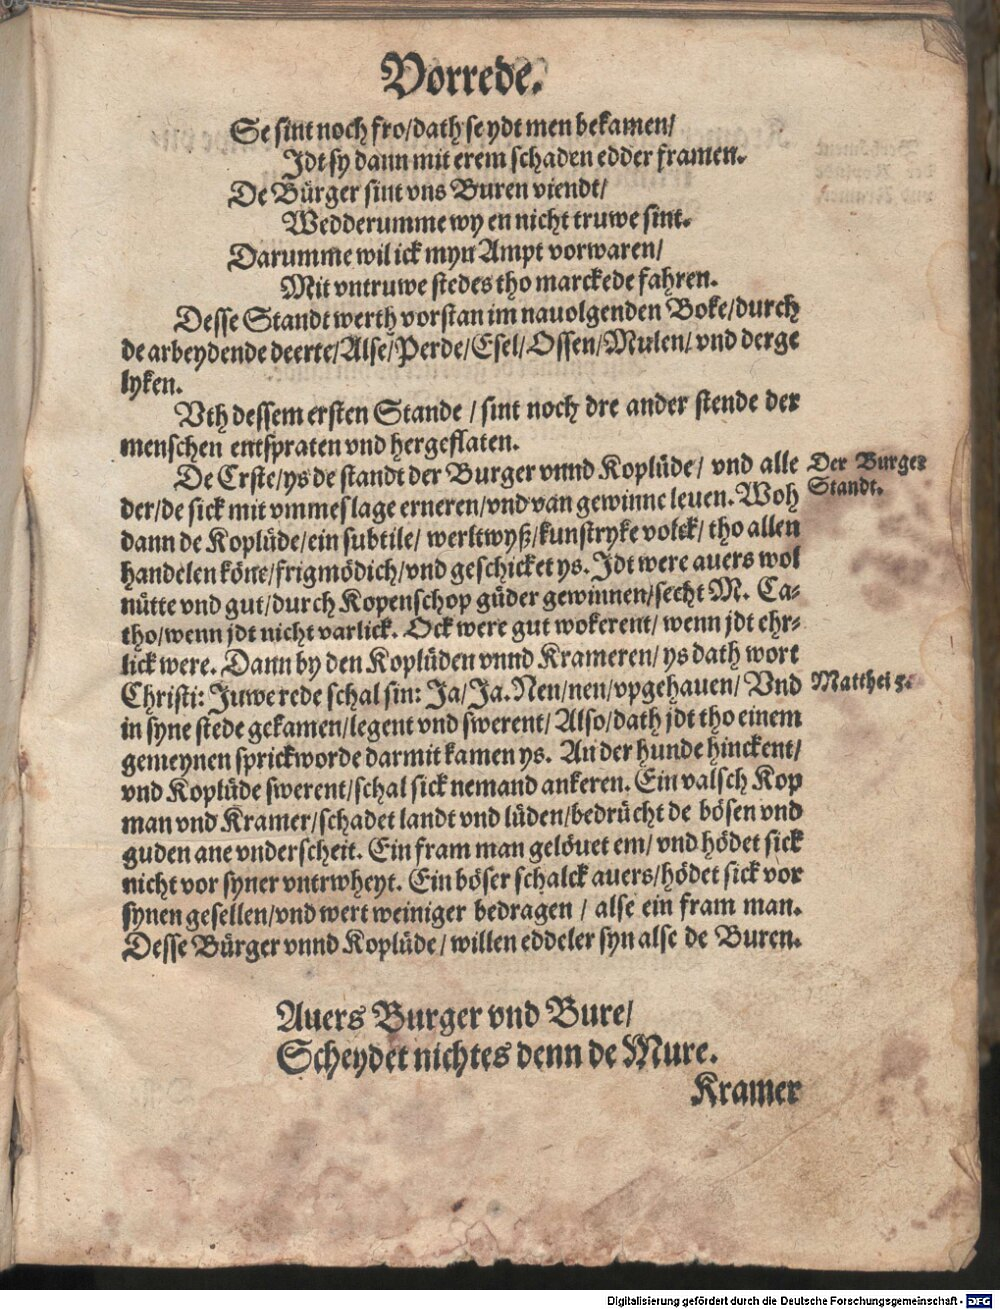 Vorrede.
Se sint noch fro/dath se ydt men bekamen/
Idt sy dann mit erem schaden edder framen.
De Bürger sint vns Buren viendt/
Wedderumme wy en nicht truwe sint.
Darumme wil ick myn Ampt vorwaren/
Mit vntruwe stedes tho marckede fahren.
Desse Standt werth vorstan im nauolgenden Boke/durch
de arbeydende deerte/Alse/Perde/Esel/Ossen/Mulen/vnd derge
lyken.
Vth dessem ersten Stande / sint noch dre ander stende der
menschen entspraten vnd hergeflaten.
De Erste/ys de standt der Burger vnnd Koplüde/ vnd alle
Der Burger
Standt.
der/de sick mit vmmeslage erneren/vnd van gewinne leuen. Woh
dann de Koplüde/ein subtile/ werltwyß/kunstryke volck/ tho allen
handelen köne/frigmödich/vnd geschicket ys. Idt were auers wol
nütte vnd gut/durch Kopenschop güder gewinnen/secht M. Ca-
tho/wenn jdt nicht varlick. Ock were gut wokerent/ wenn jdt ehr-
lick were. Dann by den Koplüden vnnd Krameren/ ys dath wort
Christi: Juwe rede schal sin: Ja/Ja. Nen/nen/vpgehauen/ Vnd
Matthei 5.
in syne stede gekamen/legent vnd swerent/Also/dath jdt tho einem
gemeynen sprickworde darmit kamen ys. An der hunde hinckent/
vnd Koplüde swerent/schal sick nemand ankeren. Ein valsch Kop
man vnd Kramer/schadet landt vnd lüden/bedrücht de bösen vnd
guden ane vnderscheit. Ein fram man gelöuet em/ vnd hödet sick
nicht vor syner vntrwheyt. Ein böser schalck auers/hödet sick vor
synen gesellen/vnd wert weiniger bedragen / alse ein fram man.
Desse Bürger vnnd Koplüde/ willen eddeler syn alse de Buren.
Auers Burger vnd Bure/
Scheydet nichtes denn de Mure.
Kramer
Digitalisierung gefördert durch die Deutsche Forschungsgemeinschaft - DFG